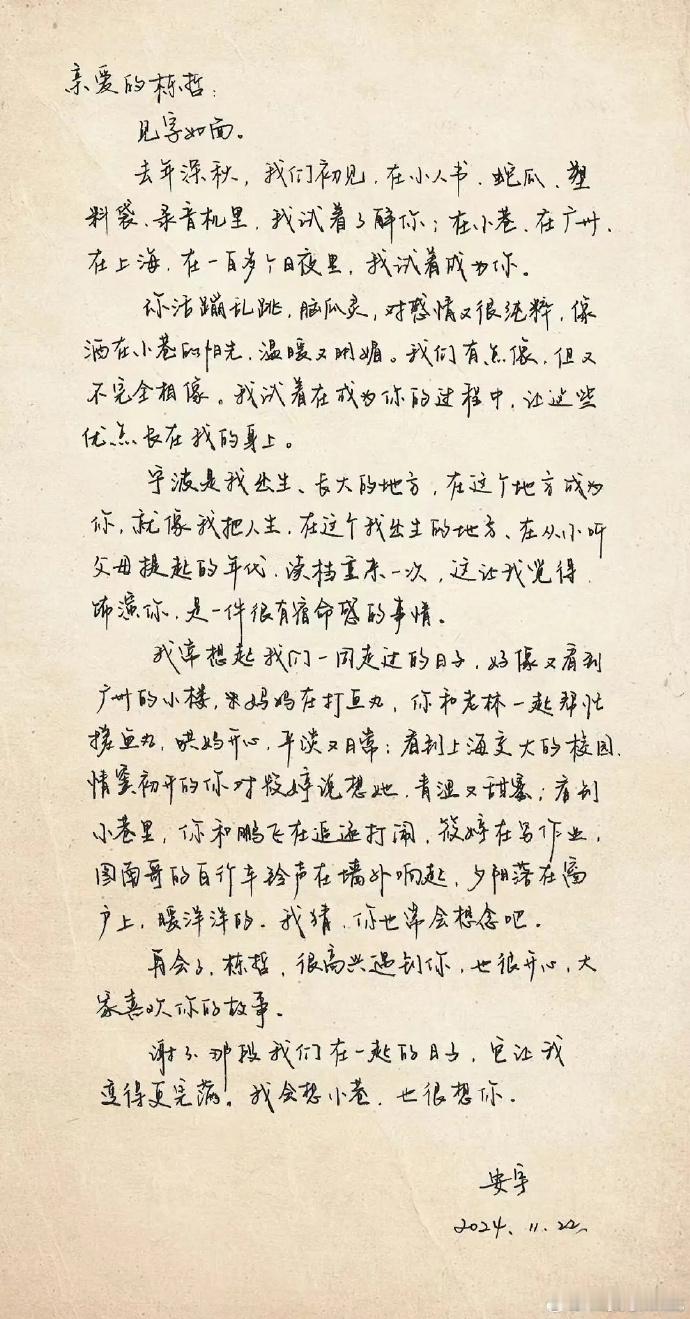 亲爱的栋哲：
见字如面。
去年深秋，我们初见，在小人书、蛇瓜、塑
料袋、录音机里，我试着了解你；在小巷、在广州、
在上海，在一百多个日夜里，我试着成为你。
你活蹦乱跳，脑瓜灵，对感情又很纯粹，像
洒在小巷的阳光，温暖又明媚。我们有点像，但又
不完全相像。我试着在成为你的过程中，让这些
优点长在我的身上。
宁波是我出生、长大的地方，在这个地方成为
你，就像我把人生，在这个我出生的地方、在从小听
父母提起的年代，读档重来一次，这让我觉得，
饰演你，是一件很有宿命感的事情。
我常想起我们一同走过的日子，好像又看到
广州的小楼，宋妈妈在打鱼丸，你和老林一起帮忙
搓鱼丸，哄妈开心，平淡又日常；看到上海交大的校园，
情窦初开的你对筱婷说想她，青涩又甜蜜；看到
小巷里，你和鹏飞在追逐打闹，筱婷在写作业，
图南哥的自行车铃声在墙外响起，夕阳落在窗
户上，暖洋洋的。我猜，你也常会想念吧。
再会了，栋哲，很高兴遇到你，也很开心，大
家喜欢你的故事。
谢谢那段我们在一起的日子，它让我
变得更完满。我会想小巷，也很想你。
安宇
2024.11.22